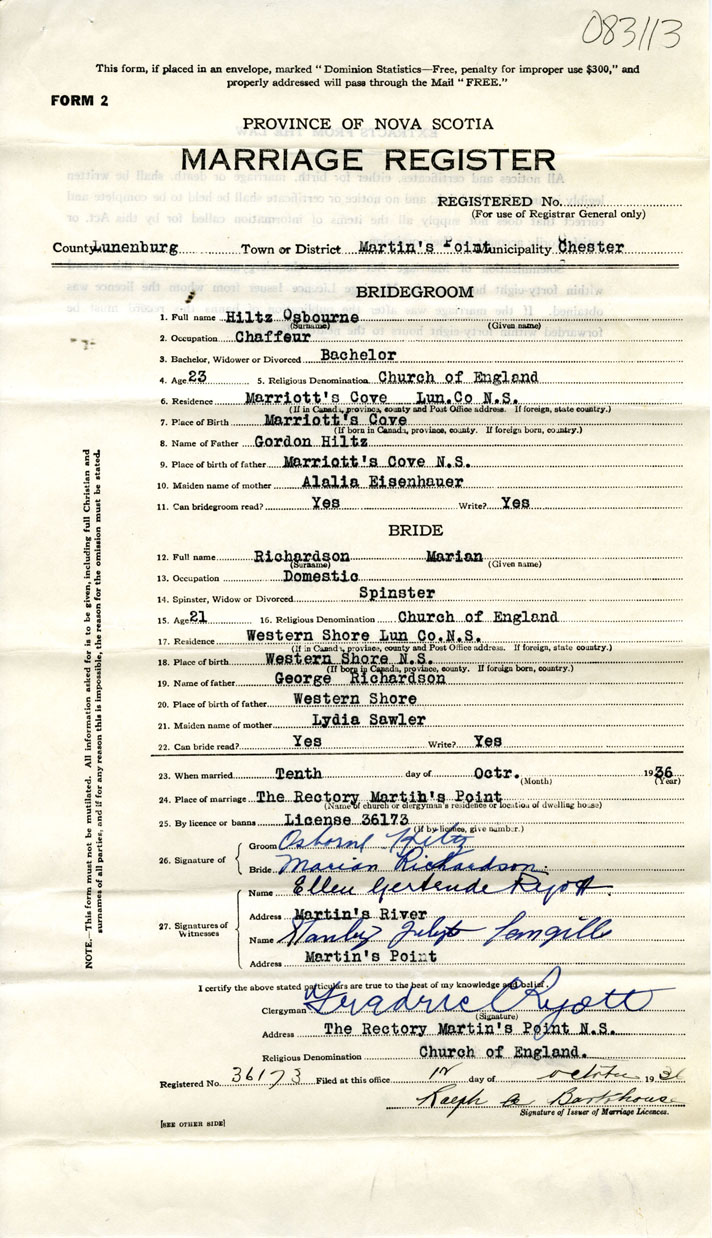 083113
This form, if placed in an envelope, marked "Dominion Statistics—Free, penalty for improper use $300," and
properly addressed will pass through the Mail "FREE."
FORM 2
PROVINCE OF NOVA SCOTIA
MARRIAGE REGISTER
REGISTERED No.
(For use of Registrar General only)
County Lunenburg Town or District Martin's Point Municipality Chester
BRIDEGROOM
1. Full name Hiltz Osbourne
(Surname) (Given name)
2. Occupation Chaffeur
3. Bachelor, Widower or Divorced Bachelor
4. Age 23 5. Religious Denomination Church of England
6. Residence Marriott's Cove Lun.Co N.S.
(If in Canada, province, county and Post Office address. If foreign, state country.)
7. Place of Birth Marriott's Cove
(If born in Canada, province, county. If foreign born, country.)
8. Name of Father Gordon Hiltz
9. Place of birth of father Marriott's Cove N.S.
10. Maiden name of mother Alalia Eisenhauer
11. Can bridegroom read? Yes Write? Yes
BRIDE
12. Full name Richardson Marian
(Surname) (Given name)
13. Occupation Domestic
14. Spinster, Widow or Divorced Spinster
15. Age 21 16. Religious Denomination Church of England
17. Residence Western Shore Lun Co.N.S.
(If in Canada, province, county and Post Office address. If foreign, state country.)
18. Place of birth Western Shore N.S.
(If born in Canada, province, county. If foreign born, country.)
19. Name of father George Richardson
20. Place of birth of father Western Shore
21. Maiden name of mother Lydia Sawler
22. Can bride read? Yes Write? Yes
23. When married Tenth day of Octr. 1936
(Month) (Year)
24. Place of marriage The Rectory Martin's Point
(Name of church or clergyman's residence or location of dwelling house)
25. By licence or banns License 36173
(If by licence, give number.)
26. Signature of
Groom Osborne Hiltz
Bride Marian Richardson.
27. Signatures of Witnesses
Name Ellen Gertrude Ryott.
Address Martin's River
Name Stanley Langille
Address Martin's Point
I certify the above stated particulars are true to the best of my knowledge and belief.
Clergyman Fradric C Ryott
(Signature)
Address The Rectory Martin's Point N.S.
Religious Denomination Church of England.
Registered No. 36173 Filed at this office day of October 1936
Ralph a Barkhouse
Signature of Issuer of Marriage Licences.
[SEE OTHER SIDE]
NOTE.—This form must not be mutilated. All information asked for is to be given, including full Christian and
surnames of all parties, and if for any reason this is impossible, the reason for the omission must be stated.